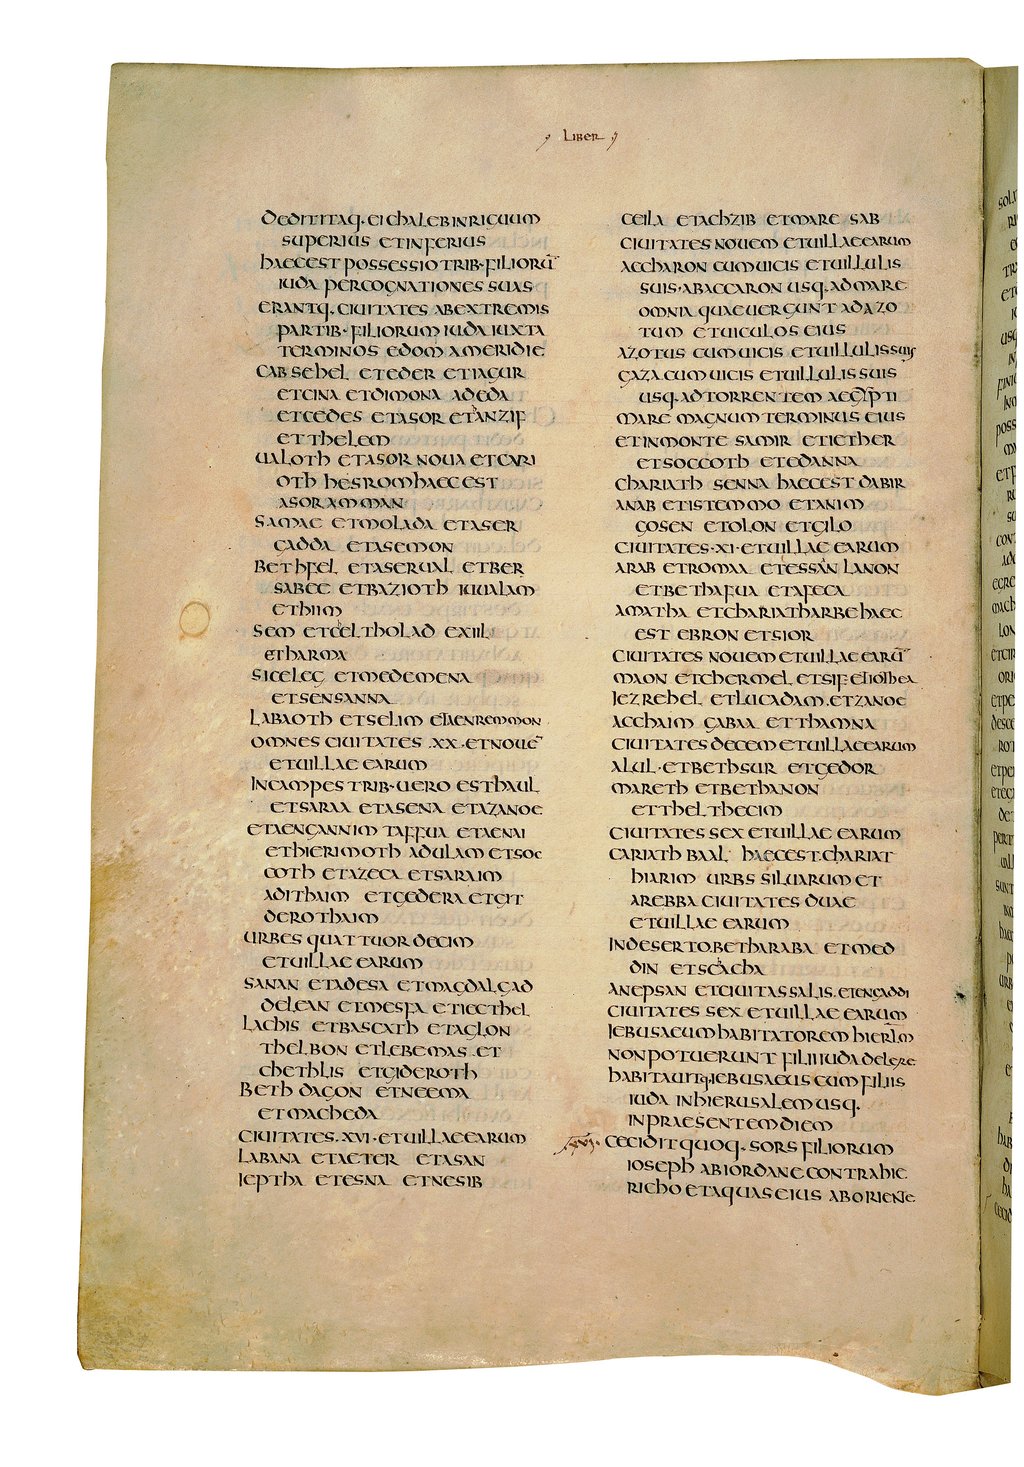 Liber
dedititaq. ei chaleb inriguum
superius etinferius
haec est possessio trib. filiorū
iuda percognationes suas
erantq. ciuitates abextremis
partib. filiorum iuda iuxta
terminos edom ameridie
cabsehel eteder etiagur
etcina etdimona adeda
etcedes etasor etanzif
etthelem
ualoth etasor noua etcari
oth hesrom haec est
asor amman
samae etmolada etaser
gadda etasemon
bethfel etaserual etber
sabee etbazioth iuualam
ethiim
sem etcel tholad exiil
etharma
siceleg etmedemena
etsensanna
labaoth etselim etaenremmon
omnes ciuitates .xx. etnouē
etuillae earum
incampestrib. uero esthaul
etsaraa etasena etazanoe
etaengannim taffua etaenai
ethierimoth adulam etsoc
coth etazeca etsaraim
adithaim etgedera etgit
derothaim
urbes quattuordecim
etuillae earum
sanan etadesa etmagdalgad
delean etmesfa etiecthel
lachis etbascath etaglon
thelbon etlebemas. et
chethlis etgideroth
beth dagon etneema
etmacheda
ciuitates. xvi. etuillae earum
labana etaeter etasan
ieptha etesna etnesib
ceila etachzib etmare sab
ciuitates nouem etuillae earum
accharon cumuicis etuillulis
suis. abaccaron usq. admare
omnia quae uergunt adazo
tum etuiculos eius
azotus cumuicis etuillulis suis
gaza cumuicis etuillulis suis
usq. adtorrentem aegypti
mare magnum terminus eius
etinmonte samir etiether
etsoccoth etedanna
chariath senna haec est dabir
anab etistemmo etanim
gosen etolon etgilo
ciuitates. xi. etuillae earum
arab etromaa etessan lanon
etbethafua etafeca
amatha etchariatharbe haec
est ebron etsior
ciuitates nouem etuillae earū
maon etchermel etsif etiothea
iezrehel etlucadam. etzanoe
acchaim gabaa etthamna
ciuitates decem etuillae earum
alul. etbethsur etgedor
mareth etbethanon
etthelthecim
ciuitates sex etuillae earum
cariath baal haec est. chariat
hiarim urbs siluarum et
arebba ciuitates duae
etuillae earum
indeserto. betharaba etmed
din etscacha
anepsan etciuitas salis. etengaddi
ciuitates sex etuillae earum
iebusaeum habitatorem hierlm
nonpotuerunt filii iuda delere
habitauitq. iebusaeus cum filiis
iuda inhierusalem usq.
inpraesentem diem
cecidit quoq. sors filiorum
ioseph abiordane contra hie
richo etaquas eius aboriente